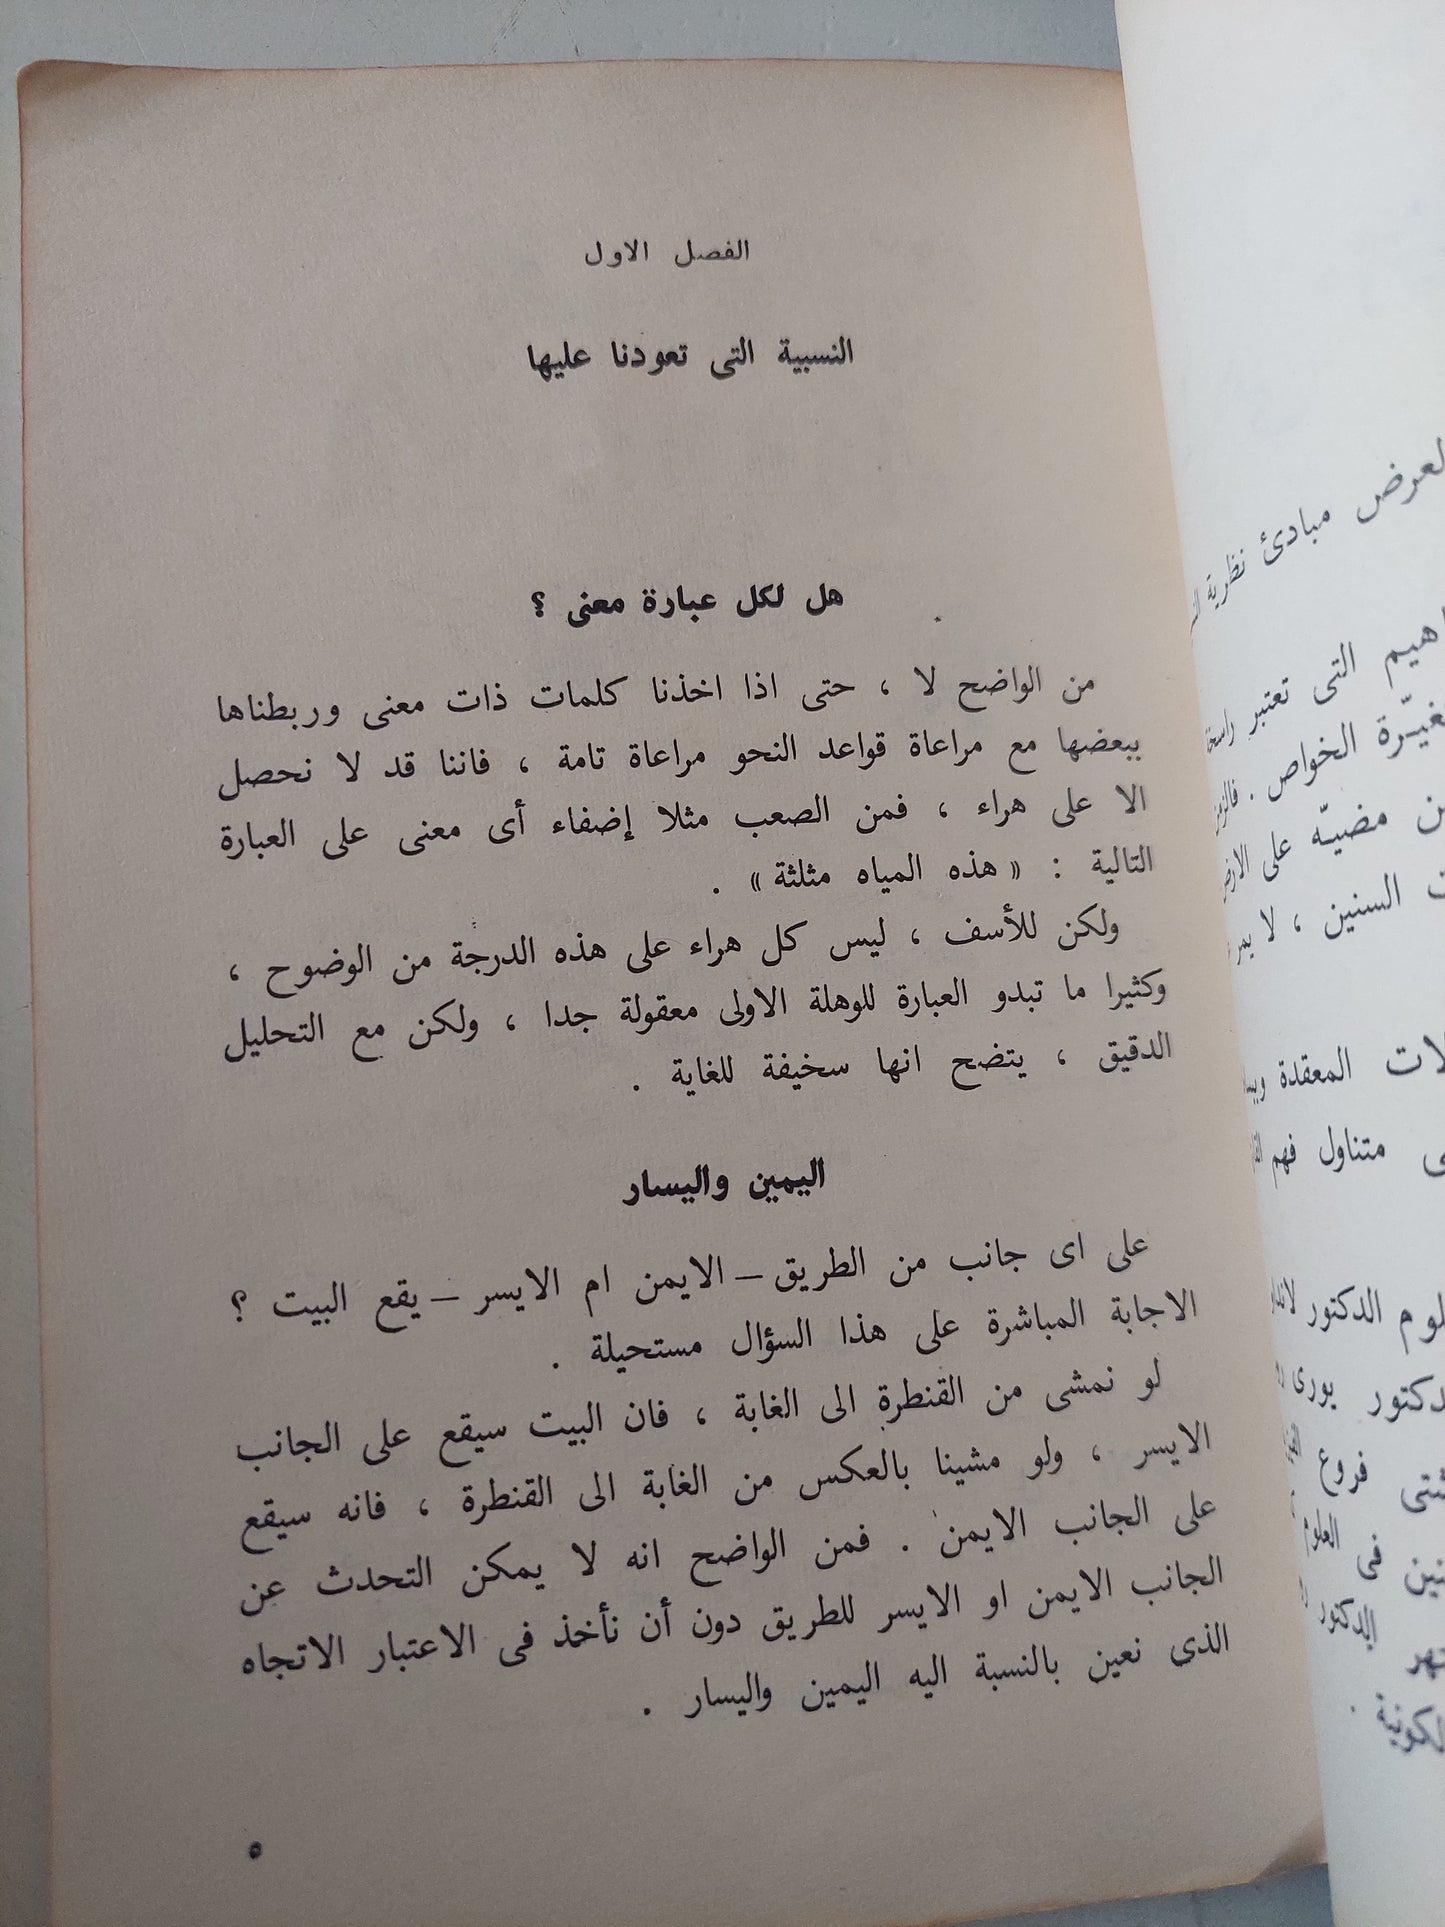 الفصل الاول
النسبية التى تعودنا عليها
هل لكل عبارة معنى ؟
من الواضح لا ، حتى اذا اخذنا كلمات ذات معنى وربطناها
ببعضها مع مراعاة قواعد النحو مراعاة تامة ، فاننا قد لا نحصل
الا على هراء ، فمن الصعب مثلا إضفاء أى معنى على العبارة
التالية : « هذه المياه مثلثة » .
ولكن للأسف ، ليس كل هراء على هذه الدرجة من الوضوح ،
وكثيرا ما تبدو العبارة للوهلة الاولى معقولة جدا ، ولكن مع التحليل
الدقيق ، يتضح انها سخيفة للغاية .
اليمين واليسار
على اى جانب من الطريق – الايمن ام الايسر – يقع البيت ؟
الاجابة المباشرة على هذا السؤال مستحيلة .
لو نمشى من القنطرة الى الغابة ، فان البيت سيقع على الجانب
الايسر ، ولو مشينا بالعكس من الغابة الى القنطرة ، فانه سيقع
على الجانب الايمن . فمن الواضح انه لا يمكن التحدث عن
الجانب الايمن او الايسر للطريق دون أن نأخذ فى الاعتبار الاتجاه
الذى نعين بالنسبة اليه اليمين واليسار .
٥
لعرض مبادئ نظرية
التى تعتبر
الخواص .
مضيّه على
السنين ، لا يمر
المعقدة
متناول فهم
الدكتور
يورى
فروع
فى العلوم
الدكتور